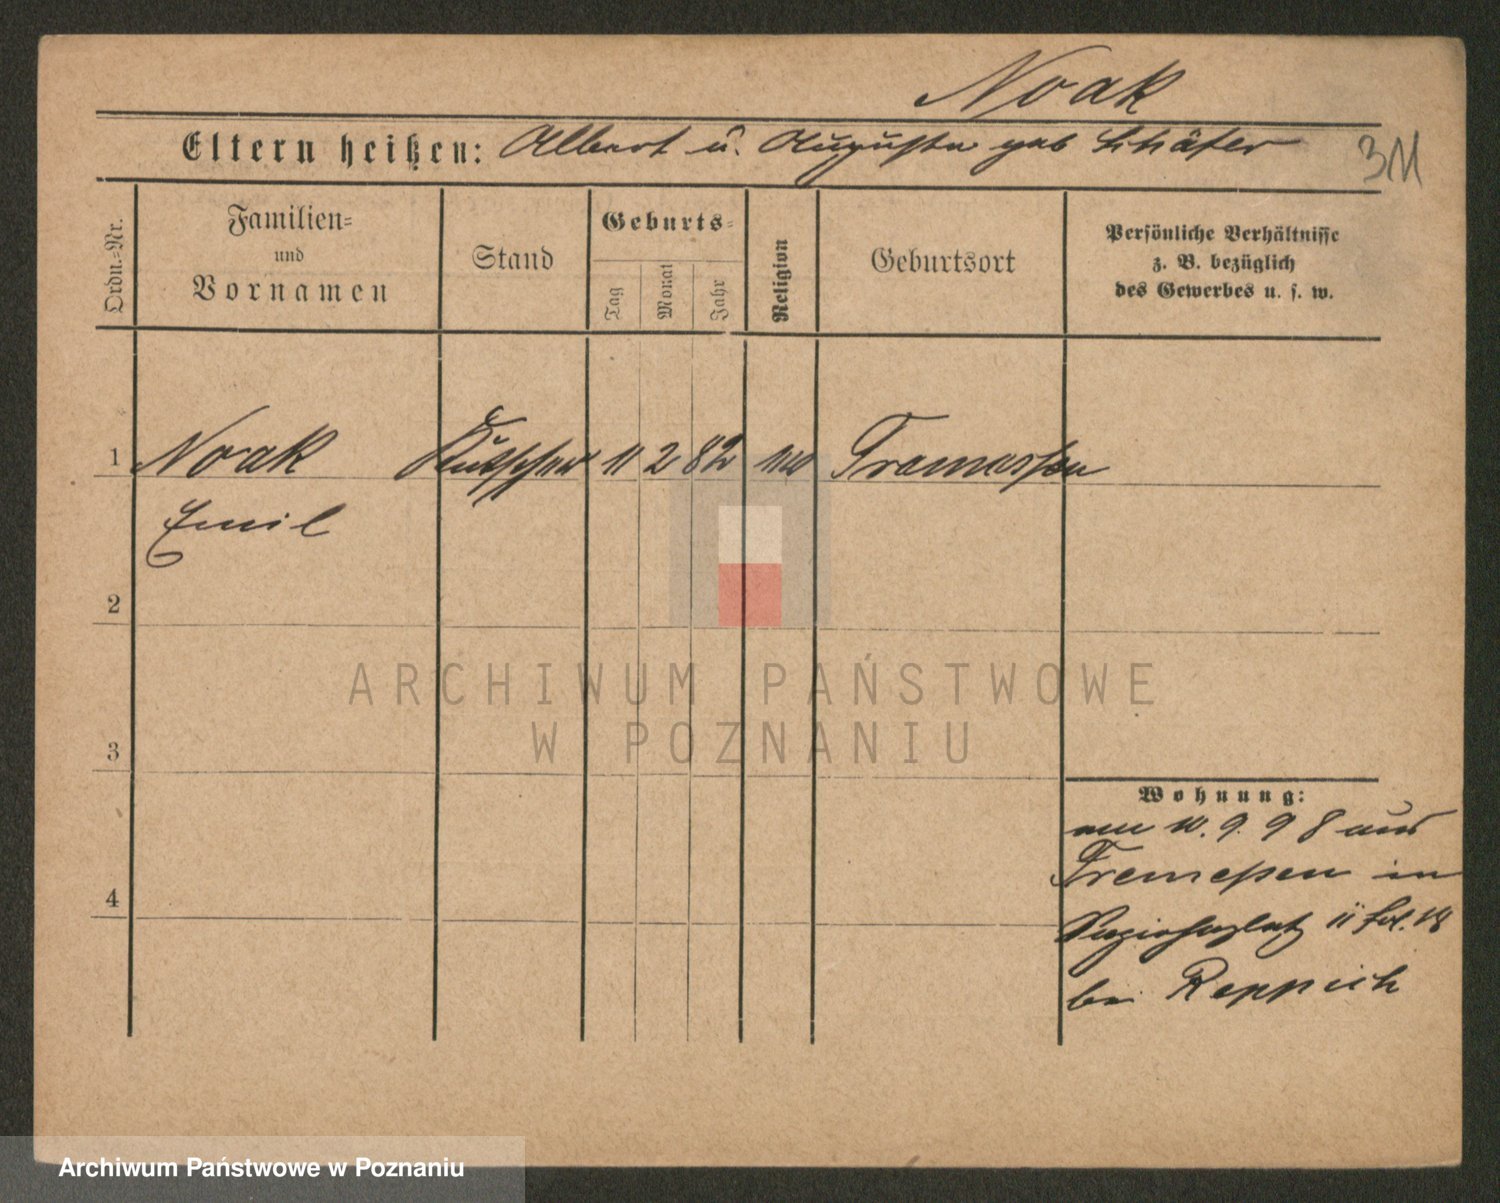 Noak
Eltern heißen: Albert u. Auguste geb Schäfer
311
Ordn.-Nr.
Familien-
und
Vornamen
Stand
Geburts-
Tag
Monat
Jahr
Religion
Geburtsort
Persönliche Verhältnisse
z. B. bezüglich
des Gewerbes u. s. w.
1 Noak Kutscher 11 2 82 Tremessen
Emil
2
ARCHIWUM PAŃSTWOWE
W POZNANIU
3
Wohnung:
9. 98 aus
4
Tremeßen in
bei Reppich
Archiwum Państwowe w Poznaniu